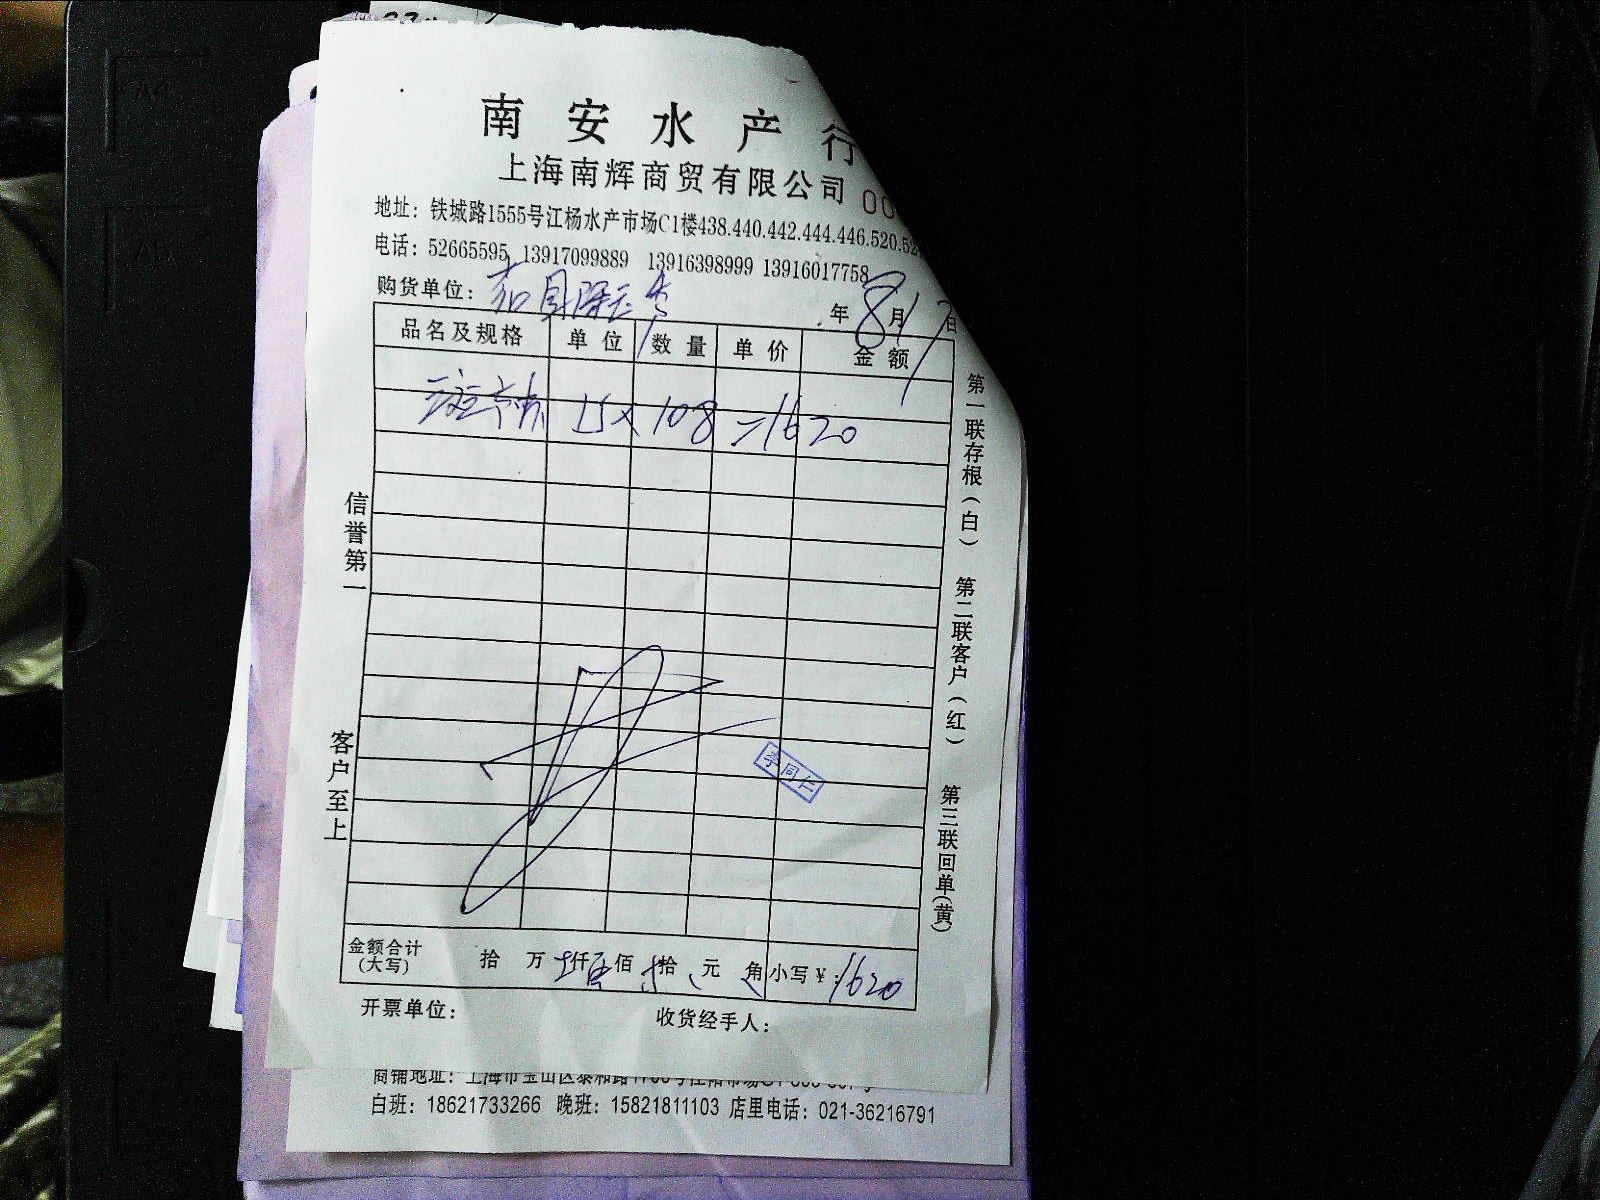 南安水产行
上海南辉商贸有限公司 00
地址：铁城路1555号江杨水产市场C1楼438.440.442.444.446.520.52
电话：52665595 13917099889 13916398999 13916017758
购货单位：
年 8月 17日
品名及规格 单位 数量 单价 金额
15 × 108 = 1620
信誉第一
客户至上
第一联存根（白） 第二联客户（红） 第三联回单（黄）
李同仁
金额合计（大写） 拾 万 仟 佰 拾 元 角 小写￥：1620
开票单位： 收货经手人：
白班：18621733266 晚班：15821811103 店里电话：021-36216791
A4
A5